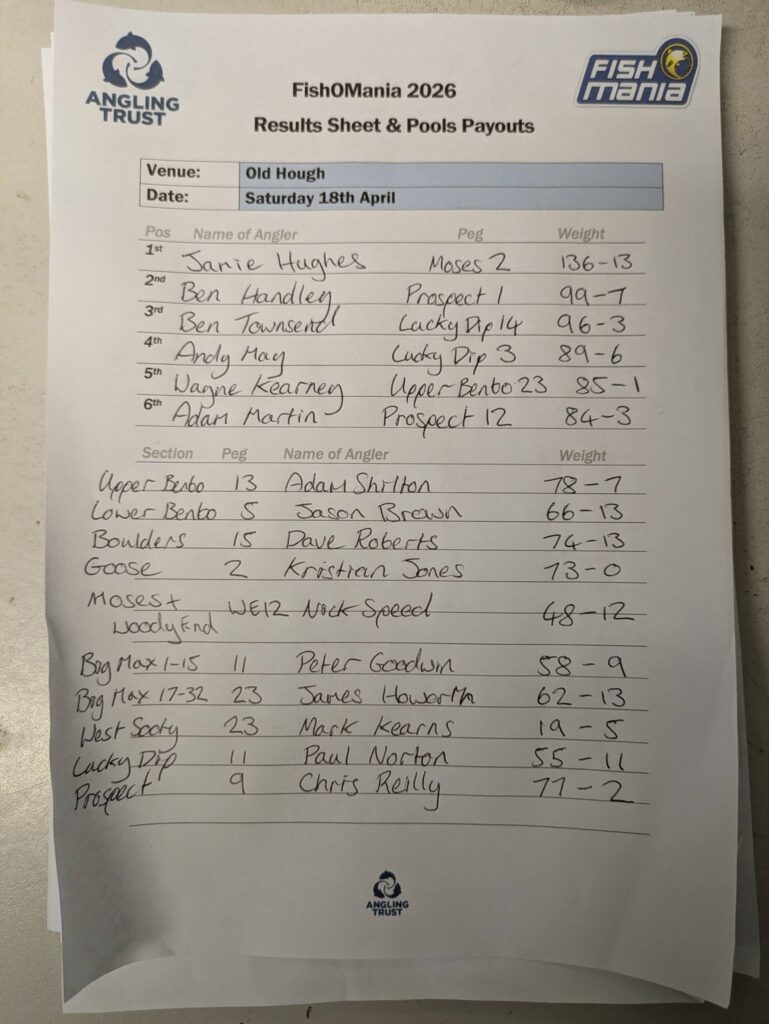 ANGLING
TRUST
FISH
mania
FishOMania 2026
Results Sheet & Pools Payouts
Venue: Old Hough
Date: Saturday 18th April
Pos Name of Angler Peg Weight
1st Jamie Hughes Moses 2 136-13
2nd Ben Handley Prospect 1 99-7
3rd Ben Townsend Lucky Dip 14 96-3
4th Andy May Lucky Dip 3 89-6
5th Wayne Kearney Upper Benbo 23 85-1
6th Adam Martin Prospect 12 84-3
Section Peg Name of Angler Weight
Upper Benbo 13 Adam Shilton 78-7
Lower Benbo 5 Jason Brown 66-13
Boulders 15 Dave Roberts 74-13
Goose 2 Kristian Jones 73-0
Moses + WE12 Nick Speed 48-12
Woody End
Big Max 1-15 11 Peter Goodwin 58-9
Big Max 17-32 23 James Howorth 62-13
West Sooty 23 Mark Kearns 19-5
Lucky Dip 11 Paul Norton 55-11
Prospect 9 Chris Reilly 77-2
ANGLING
TRUST